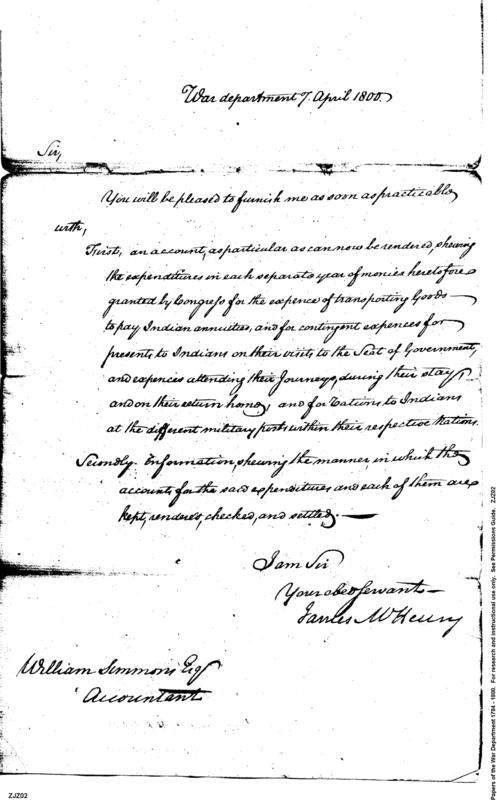 War department 7. April 1800.
Sir,
You will be pleased to furnish me as soon as practicable
with,
First, an account, as particular as can now be rendered, shewing
the expenditures in each separate year of monies heretofore
granted by Congress for the expence of transporting Goods
to pay Indian annuities, and for contingent expences for
presents to Indians on their visits to the Seat of Government,
and expences attending their Journeys, during their stay,
and on their return home, and for rations to Indians
at the different military posts within their respective Nations.
Secondly. Information, shewing the manner, in which the
accounts for the said expenditures and each of them are
kept, rendered, checked, and settled. —
I am Sir
Your obed Servant
James McHenry
William Simmons Esqr
Accountant
ZJZ02
Papers of the War Department 1784 - 1800. For research and instructional use only. See Permissions Guide. ZJZ02